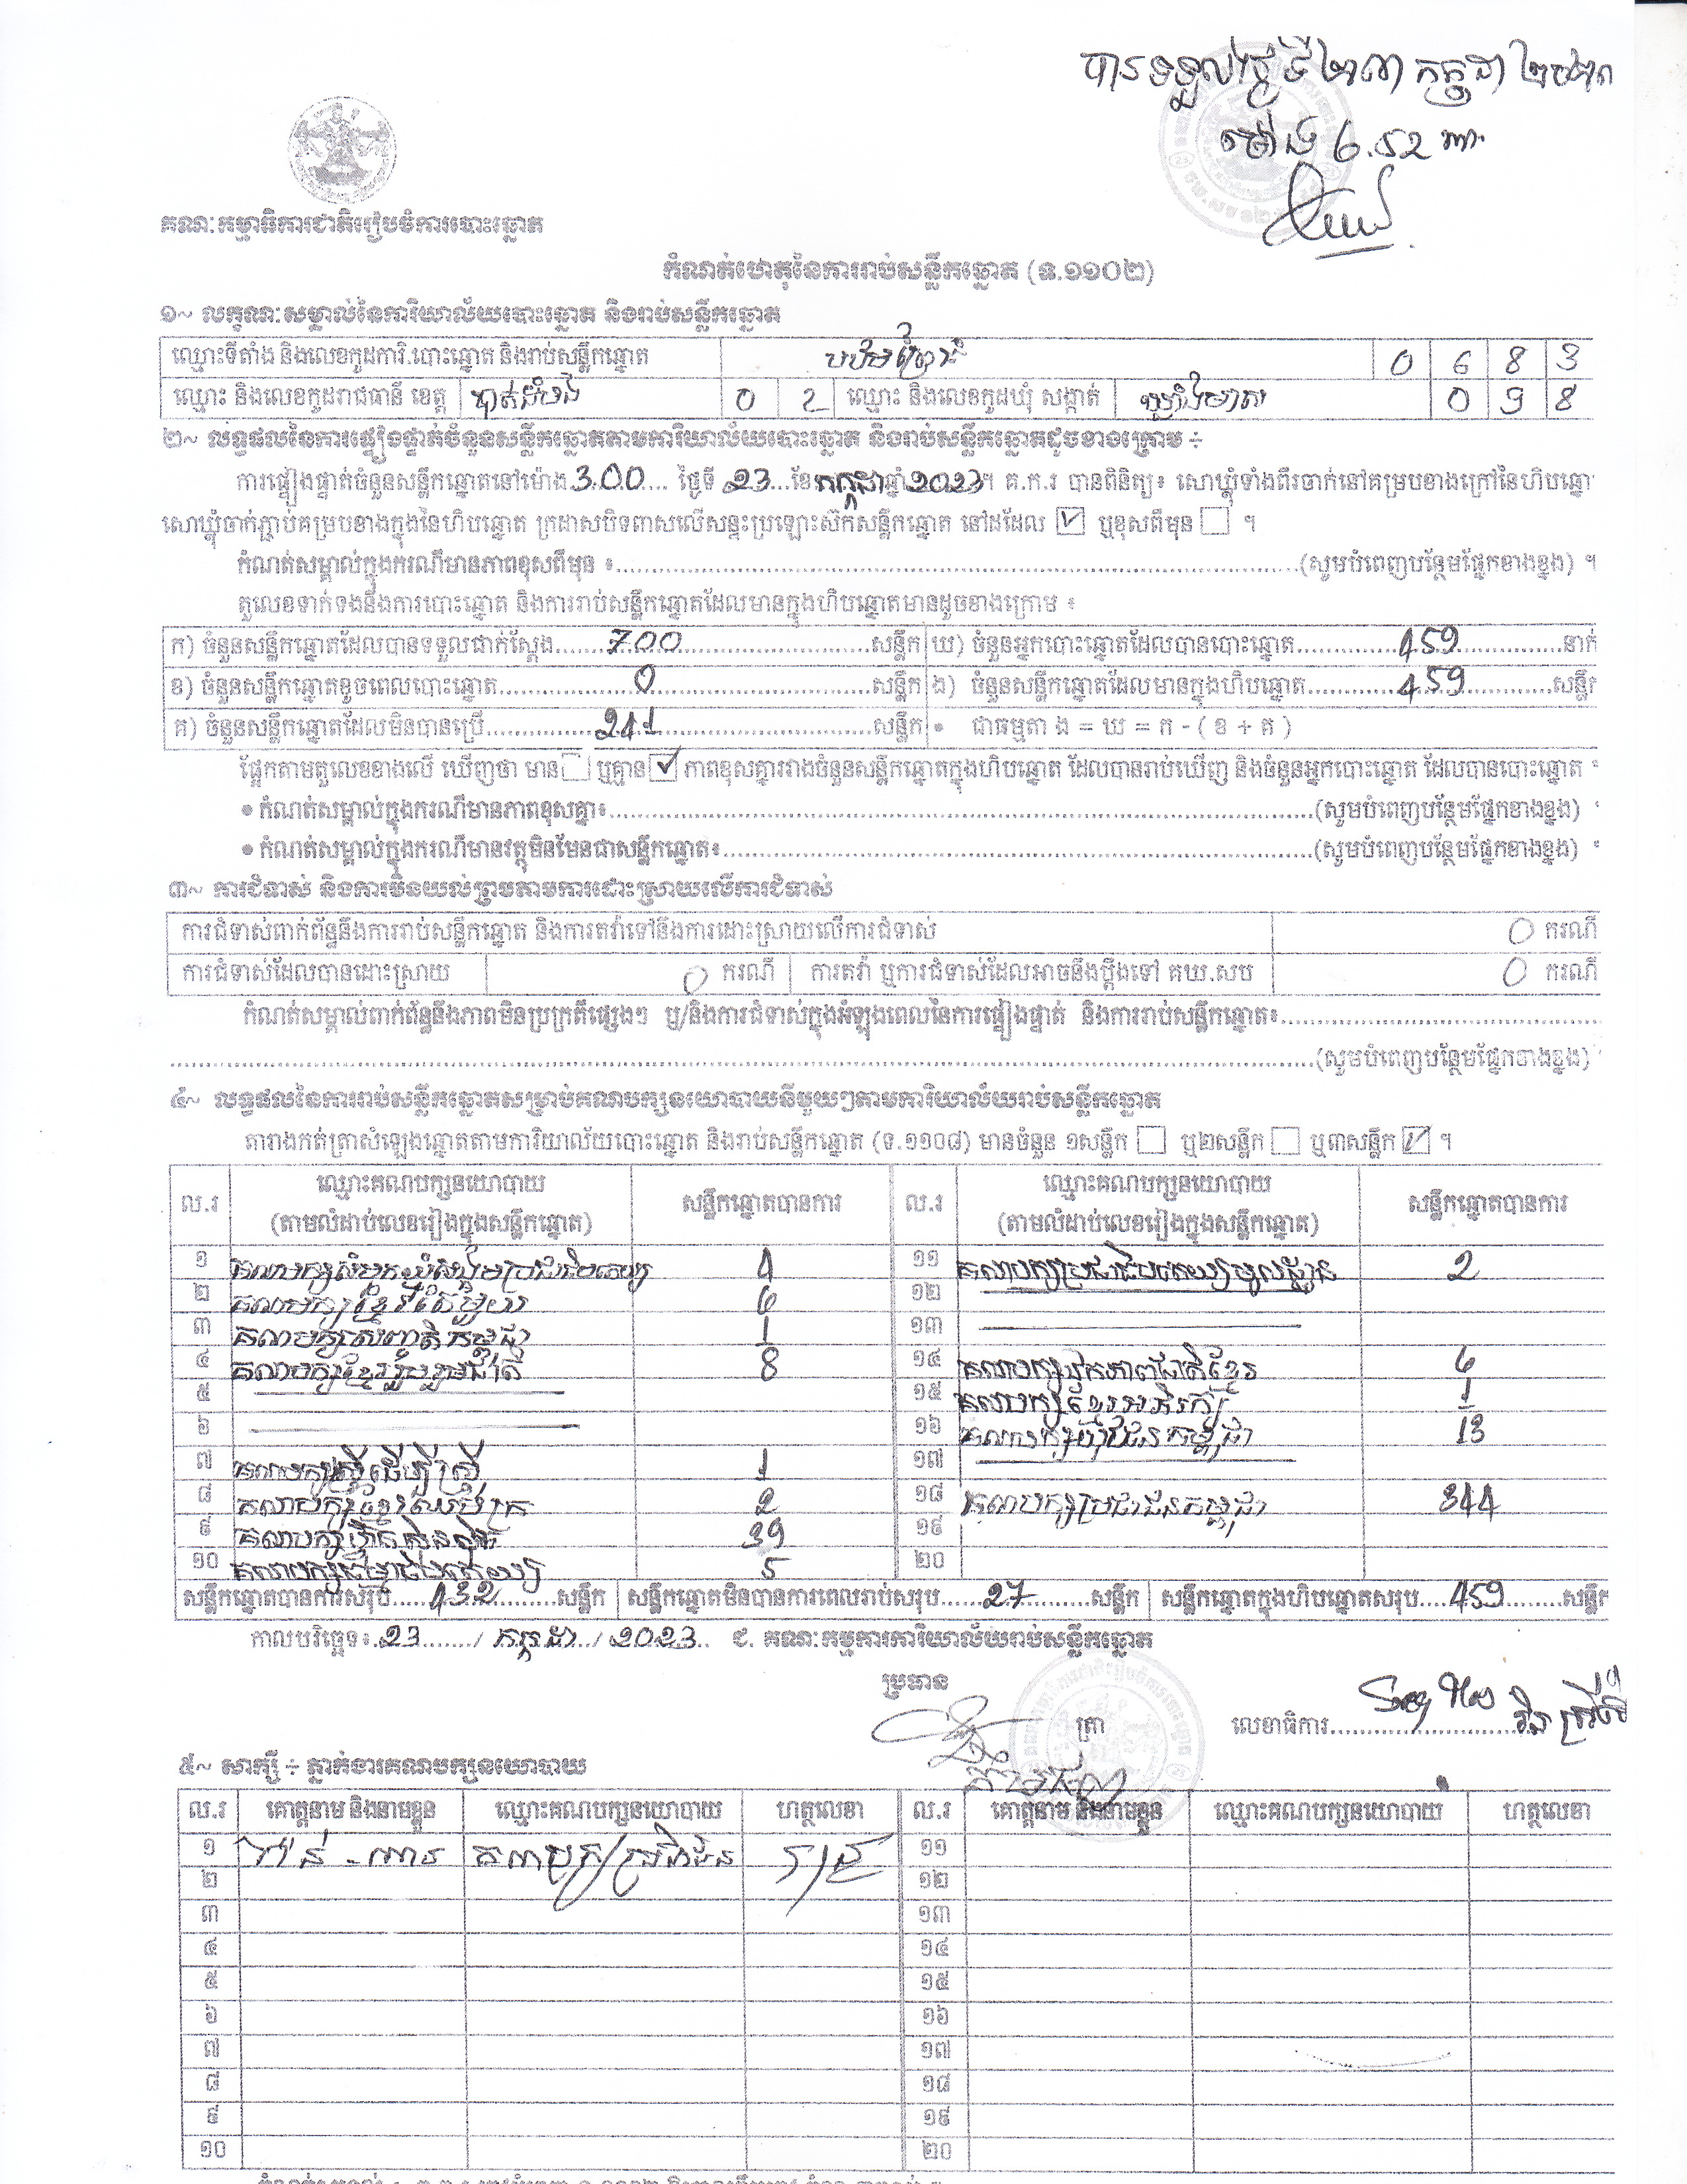 បានទទួលថ្ងៃទី ២៣ កក្កដា ២០២៣
ម៉ោង 6.52 នាទី
គណៈកម្មាធិការជាតិរៀបចំការបោះឆ្នោត
កំណត់ហេតុនៃការរាប់សន្លឹកឆ្នោត (ទ.១១០២)
១~ លក្ខណៈសម្គាល់នៃការិយាល័យបោះឆ្នោត និងរាប់សន្លឹកឆ្នោត
ឈ្មោះទីតាំង និងលេខកូដការិ.បោះឆ្នោត និងរាប់សន្លឹកឆ្នោត 0 6 8 3
ឈ្មោះ និងលេខកូដរាជធានី ខេត្ត បាត់ដំបង 0 2 ឈ្មោះ និងលេខកូដឃុំ សង្កាត់ 0 9 8
២~ លទ្ធផលនៃការផ្ទៀងផ្ទាត់ចំនួនសន្លឹកឆ្នោតតាមការិយាល័យបោះឆ្នោត និងរាប់សន្លឹកឆ្នោតដូចខាងក្រោម ÷
ការផ្ទៀងផ្ទាត់ចំនួនសន្លឹកឆ្នោតនៅម៉ោង 3.00 ថ្ងៃទី 23 ខែ កក្កដា ឆ្នាំ 2023។ គ.ក.រ បានពិនិត្យ៖ សោឃ្លុំទាំងពីរចាក់នៅគម្របខាងក្រៅនៃហិបឆ្នោ
សោឃ្លុំចាក់ភ្ជាប់គម្របខាងក្នុងនៃហិបឆ្នោត ក្រដាសបិទពាសលើសន្ទះប្រឡោះស៊កសន្លឹកឆ្នោត នៅដដែល ☑ ឬខុសពីមុន ☐ ។
កំណត់សម្គាល់ក្នុងករណីមានភាពខុសពីមុន ៖ (សូមបំពេញបន្ថែមផ្នែកខាងខ្នង) ។
តួលេខទាក់ទងនឹងការបោះឆ្នោត និងការរាប់សន្លឹកឆ្នោតដែលមានក្នុងហិបឆ្នោតមានដូចខាងក្រោម ៖
ក) ចំនួនសន្លឹកឆ្នោតដែលបានទទួលជាក់ស្តែង 700 សន្លឹក ឃ) ចំនួនអ្នកបោះឆ្នោតដែលបានបោះឆ្នោត 459 នាក់
ខ) ចំនួនសន្លឹកឆ្នោតខូចពេលបោះឆ្នោត 0 សន្លឹក ង) ចំនួនសន្លឹកឆ្នោតដែលមានក្នុងហិបឆ្នោត 459 សន្លឹក
គ) ចំនួនសន្លឹកឆ្នោតដែលមិនបានប្រើ 241 សន្លឹក • ជាធម្មតា ង = ឃ = ក - ( ខ + គ )
ផ្អែកតាមតួលេខខាងលើ ឃើញថា មាន ☐ ឬគ្មាន ☑ ភាពខុសគ្នារវាងចំនួនសន្លឹកឆ្នោតក្នុងហិបឆ្នោត ដែលបានរាប់ឃើញ និងចំនួនអ្នកបោះឆ្នោត ដែលបានបោះឆ្នោត
• កំណត់សម្គាល់ក្នុងករណីមានភាពខុសគ្នា៖ (សូមបំពេញបន្ថែមផ្នែកខាងខ្នង)
• កំណត់សម្គាល់ក្នុងករណីមានវត្ថុមិនមែនជាសន្លឹកឆ្នោត៖ (សូមបំពេញបន្ថែមផ្នែកខាងខ្នង)
៣~ ការជំទាស់ និងការមិនយល់ព្រមតាមការដោះស្រាយលើការជំទាស់
ការជំទាស់ពាក់ព័ន្ធនឹងការរាប់សន្លឹកឆ្នោត និងការតវ៉ាទៅនឹងការដោះស្រាយលើការជំទាស់ 0 ករណី
ការជំទាស់ដែលបានដោះស្រាយ 0 ករណី ការតវ៉ា ឬការជំទាស់ដែលអាចនឹងប្តឹងទៅ គឃ.សប 0 ករណី
កំណត់សម្គាល់ពាក់ព័ន្ធនឹងភាពមិនប្រក្រតីផ្សេងៗ ឬ/និងការជំទាស់ក្នុងអំឡុងពេលនៃការផ្ទៀងផ្ទាត់ និងការរាប់សន្លឹកឆ្នោត៖
(សូមបំពេញបន្ថែមផ្នែកខាងខ្នង)
៤~ លទ្ធផលនៃការរាប់សន្លឹកឆ្នោតសម្រាប់គណបក្សនយោបាយនីមួយៗតាមការិយាល័យរាប់សន្លឹកឆ្នោត
តារាងកត់ត្រាសំឡេងឆ្នោតតាមការិយាល័យបោះឆ្នោត និងរាប់សន្លឹកឆ្នោត (ទ.១១០៨) មានចំនួន ១សន្លឹក ☐ ឬ២សន្លឹក ☐ ឬ៣សន្លឹក ☑ ។
ល.រ ឈ្មោះគណបក្សនយោបាយ សន្លឹកឆ្នោតបានការ ល.រ ឈ្មោះគណបក្សនយោបាយ សន្លឹកឆ្នោតបានការ
(តាមលំដាប់លេខរៀងក្នុងសន្លឹកឆ្នោត) (តាមលំដាប់លេខរៀងក្នុងសន្លឹកឆ្នោត)
១ គណបក្សសំបុកឃ្មុំសង្គមប្រជាធិបតេយ្យ 4 ១១ គណបក្សប្រជាធិបតេយ្យមូលដ្ឋាន 2
២ គណបក្សខ្មែរតែមួយ 6 ១២
៣ គណបក្សសញ្ជាតិកម្ពុជា 1 ១៣
៤ គណបក្សខ្មែររួបរួមជាតិ 8 ១៤ គណបក្សឯកភាពជាតិខ្មែរ 6
៥ ១៥ គណបក្សខ្មែរអភិរក្ស 1
៦ ១៦ គណបក្សយុវជនកម្ពុជា 13
៧ គណបក្សស្ត្រីដើម្បីស្ត្រី 1 ១៧
៨ គណបក្សខ្មែរឈប់ក្រ 2 ១៨ គណបក្សប្រជាជនកម្ពុជា 344
៩ គណបក្សហ៊្វុនស៊ិនប៉ិច 39 ១៩
១០ គណបក្សធម្មាធិបតេយ្យ 5 ២០
សន្លឹកឆ្នោតបានការសរុប 432 សន្លឹក សន្លឹកឆ្នោតមិនបានការពេលរាប់សរុប 27 សន្លឹក សន្លឹកឆ្នោតក្នុងហិបឆ្នោតសរុប 459 សន្លឹក
កាលបរិច្ឆេទ៖ 23 / កក្កដា / 2023 ជ. គណៈកម្មការការិយាល័យរាប់សន្លឹកឆ្នោត
ប្រធាន
ត្រា លេខាធិការ
៥~ សាក្សី ÷ ភ្នាក់ងារគណបក្សនយោបាយ
ល.រ គោត្តនាម និងនាមខ្លួន ឈ្មោះគណបក្សនយោបាយ ហត្ថលេខា ល.រ គោត្តនាម និងនាមខ្លួន ឈ្មោះគណបក្សនយោបាយ ហត្ថលេខា
១ គណបក្សប្រជាជន ១១
២ ១២
៣ ១៣
៤ ១៤
៥ ១៥
៦ ១៦
៧ ១៧
៨ ១៨
៩ ១៩
១០ ២០